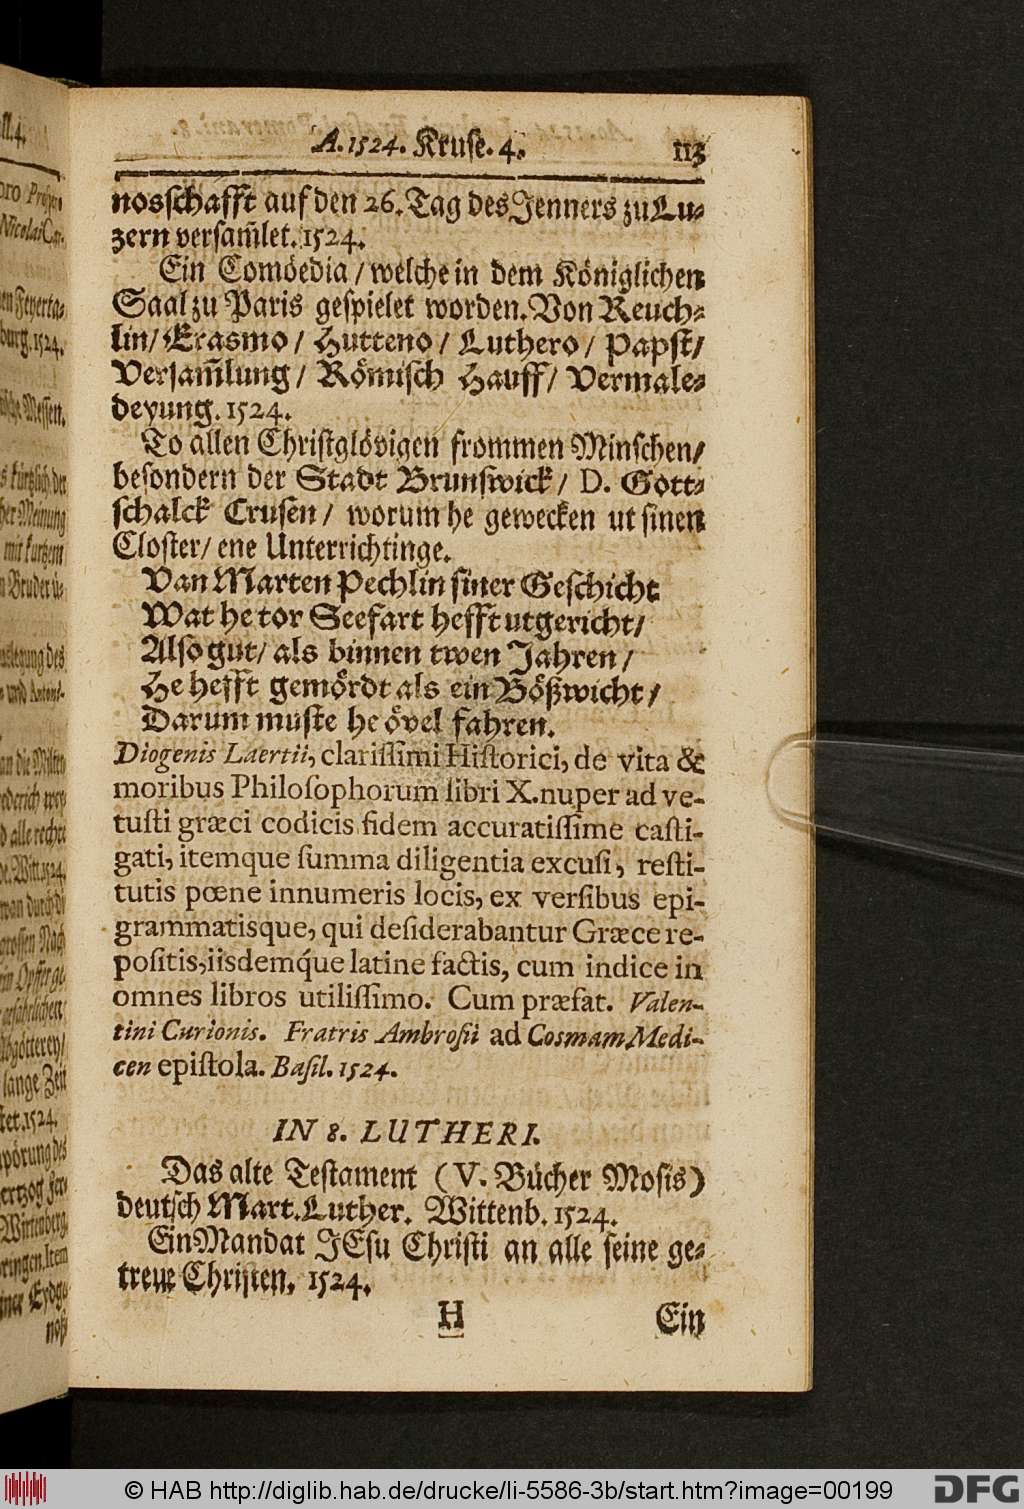 A. 1524. Kruse. 4. 113
nosschafft auf den 26. Tag des Jenners zu Lu-
zern versam̃let. 1524.
Ein Comöedia / welche in dem Königlichen
Saal zu Paris gespielet worden. Von Reuch-
lin / Erasmo / Hutteno / Luthero / Papst /
Versam̃lung / Römisch Hauff / Vermale-
deyung. 1524.
To allen Christglövigen frommen Minschen /
besondern der Stadt Brunswick / D. Gott-
schalck Crusen / worum he gewecken ut sinen
Closter / ene Unterrichtinge.
Van Marten Pechlin siner Geschicht
Wat he tor Seefart hefft utgericht /
Also gut / als binnen twen Jahren /
He hefft gemördt als ein Bößwicht /
Darum muste he övel fahren.
Diogenis Laertii, clarissimi Historici, de vita &
moribus Philosophorum libri X. nuper ad ve-
tusti græci codicis fidem accuratissime casti-
gati, itemque summa diligentia excusi, resti-
tutis pœne innumeris locis, ex versibus epi-
grammatisque, qui desiderabantur Græce re-
positis, iisdemq́ue latine factis, cum indice in
omnes libros utilissimo. Cum præfat. Valen-
tini Curionis. Fratris Ambrosii ad Cosmam Medi-
cen epistola. Basil. 1524.
IN 8. LUTHERI.
Das alte Testament (V. Bücher Mosis)
deutsch Mart. Luther. Wittenb. 1524.
Ein Mandat JEsu Christi an alle seine ge-
treue Christen. 1524.
H Ein
© HAB http://diglib.hab.de/drucke/li-5586-3b/start.htm?image=00199
DFG